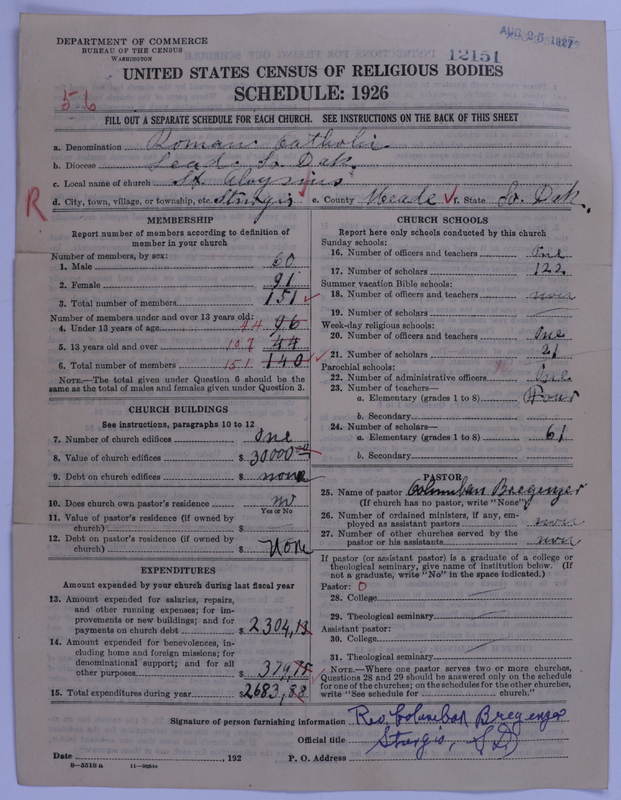 AUG 26 1927
12151
DEPARTMENT OF COMMERCE
BUREAU OF THE CENSUS
WASHINGTON
UNITED STATES CENSUS OF RELIGIOUS BODIES
SCHEDULE: 1926
56
FILL OUT A SEPARATE SCHEDULE FOR EACH CHURCH. SEE INSTRUCTIONS ON THE BACK OF THIS SHEET
a. Denomination Roman Catholic
b. Diocese Lead So. Dak.
c. Local name of church St. Aloysius
d. City, town, village, or township, etc. Sturgis e. County Meade f. State So. Dak.
R
MEMBERSHIP
Report number of members according to definition of member in your church
Number of members, by sex:
1. Male 60
2. Female 91
3. Total number of members 151
Number of members under and over 13 years old:
4. Under 13 years of age 44 96
5. 13 years old and over 107 44
6. Total number of members 151 140
NOTE.—The total given under Question 6 should be the
same as the total of males and females given under Question 3.
CHURCH BUILDINGS
See instructions, paragraphs 10 to 12
7. Number of church edifices One
8. Value of church edifices $ 30000.00
9. Debt on church edifices $ none
10. Does church own pastor's residence no
Yes or No
11. Value of pastor's residence (if owned by
church) $
12. Debt on pastor's residence (if owned by
church) $ None
EXPENDITURES
Amount expended by your church during last fiscal year
13. Amount expended for salaries, repairs,
and other running expenses; for im-
provements or new buildings; and for
payments on church debt $ 2304,13
14. Amount expended for benevolences, in-
cluding home and foreign missions; for
denominational support; and for all
other purposes $ 379,75
15. Total expenditures during year $ 2683,88
CHURCH SCHOOLS
Report here only schools conducted by this church
Sunday schools:
16. Number of officers and teachers One
17. Number of scholars 122
Summer vacation Bible schools:
18. Number of officers and teachers none
19. Number of scholars
Week-day religious schools:
20. Number of officers and teachers One
21. Number of scholars 21
Parochial schools:
22. Number of administrative officers One
23. Number of teachers—
a. Elementary (grades 1 to 8) Four
b. Secondary
24. Number of scholars—
a. Elementary (grades 1 to 8) 61
b. Secondary
PASTOR
25. Name of pastor Columban Bregenzer
(If church has no pastor, write "None")
26. Number of ordained ministers, if any, em-
ployed as assistant pastors none
27. Number of other churches served by the
pastor or his assistants non
If pastor (or assistant pastor) is a graduate of a college or
theological seminary, give name of institution below. (If
not a graduate, write "No" in the space indicated.)
Pastor: O
28. College
29. Theological seminary
Assistant pastor:
30. College
31. Theological seminary
NOTE.—Where one pastor serves two or more churches,
Questions 28 and 29 should be answered only on the schedule
for one of the churches; on the schedules for the other churches,
write "See schedule for church."
Signature of person furnishing information Rev. Columban Bregenzer
Official title Sturgis, S.D.
Date , 192 P. O. Address
8—5518 a